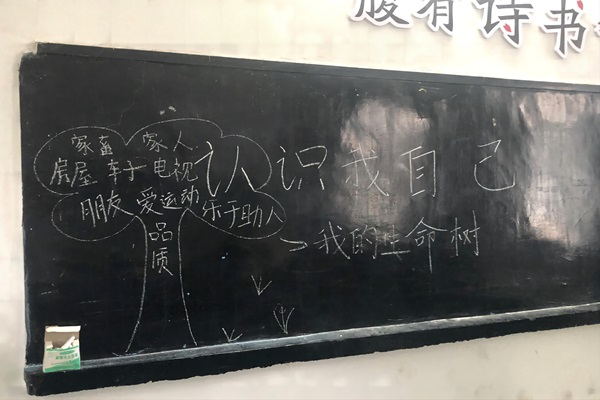 腹有诗书
认识我自己
——我的生命树
家畜 家人
房屋 车子 电视
朋友 爱运动 乐于助人
品质